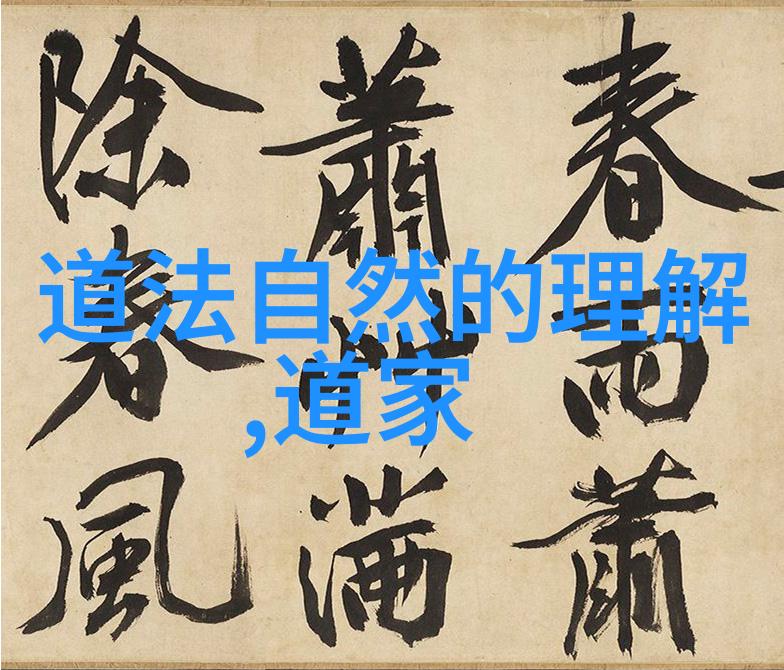 春雨蕭
蕭滿
除春風
道法自然的理解
,道家